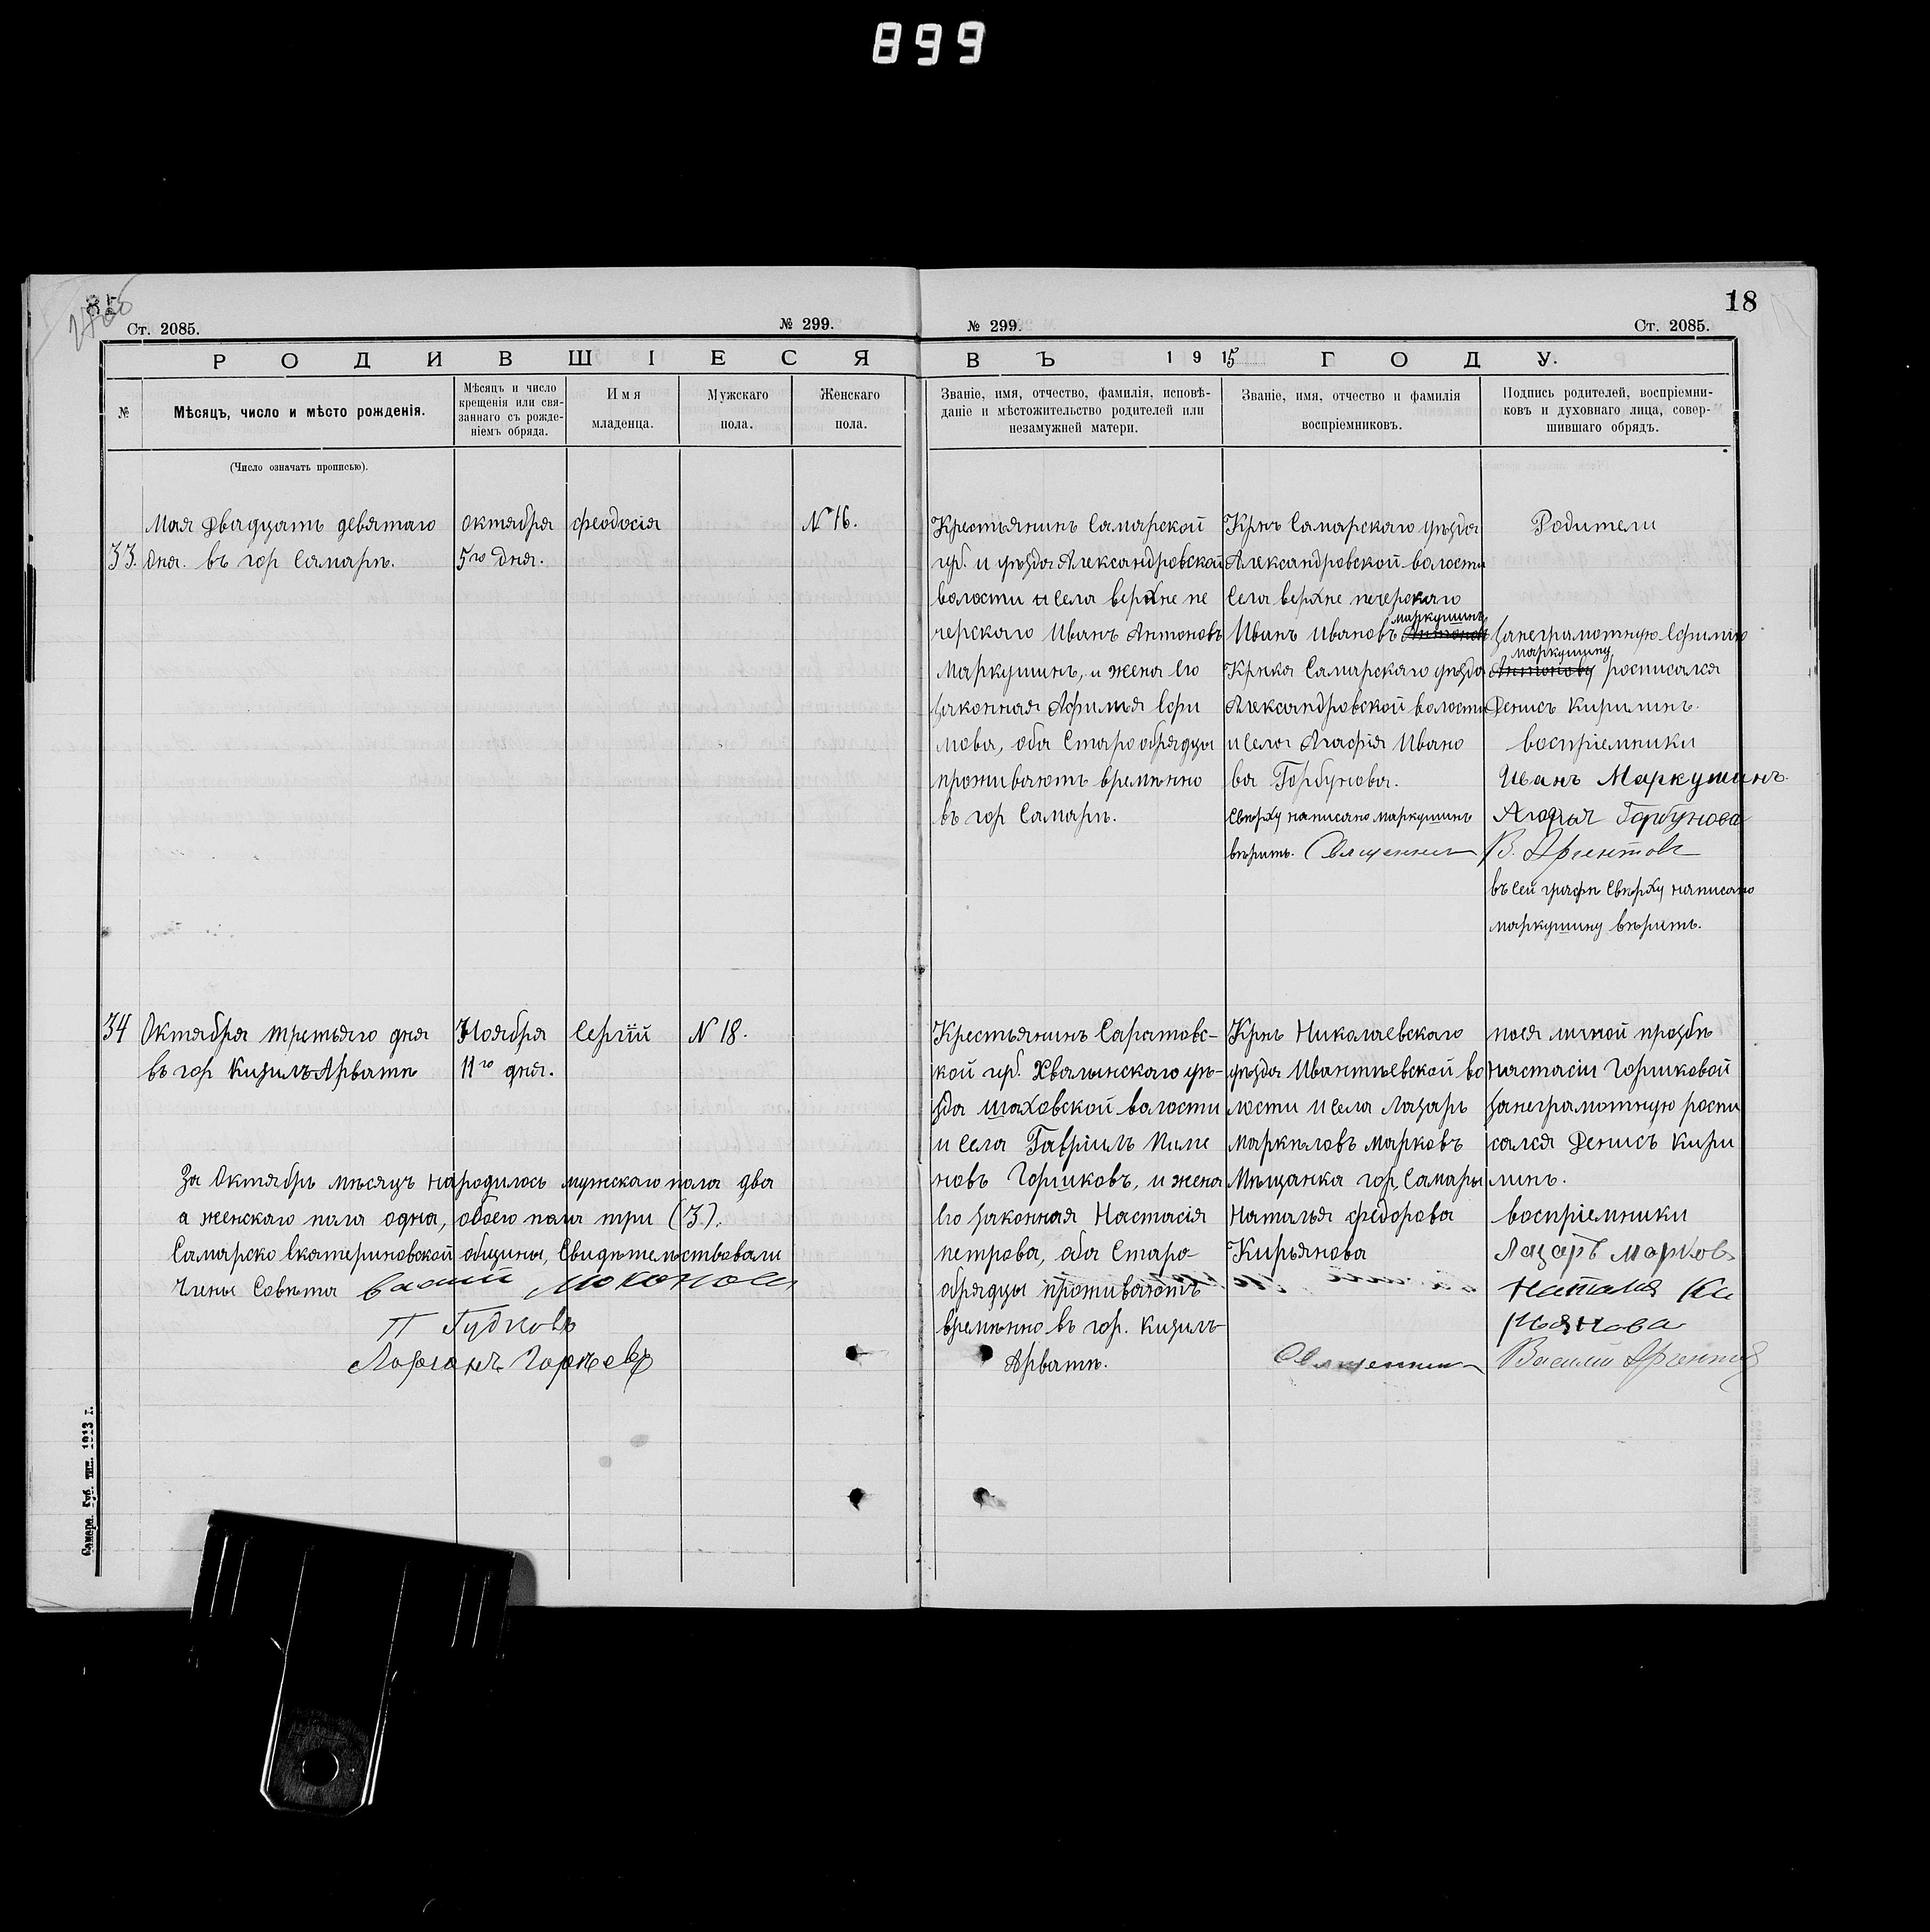 899
18
Ст. 2085.
№ 299.
№ 299.
Ст. 2085.
РОДИВШІЕСЯ
ВЪ 1915 ГОДУ.
№
Мѣсяцъ, число и мѣсто рожденія.
Мѣсяцъ и число
крещенія или свя-
заннаго съ рожде-
ніемъ обряда.
Имя
младенца.
Мужскаго
пола.
Женскаго
пола.
Званіе, имя, отчество, фамилія, исповѣ-
даніе и мѣстожительство родителей или
незамужней матери.
Званіе, имя, отчество и фамилія
воспріемниковъ.
Подпись родителей, воспріемни-
ковъ и духовнаго лица, совер-
шившаго обрядъ.
(Число означать прописью).
33.
Мая Двадцать девятаго
дня. въ гор Самарѣ.
октября
5го дня.
феодосія
№ 16.
Крестьянинъ Самарской
губ. и уѣзда Александровской
волости и села верхне пе
черскаго Иванъ Антоновъ
Маркушинъ, и жена Его
законная Афимья Ефи
мова, оба Старообрядцы
проживаютъ временно
въ гор Самарѣ.
Крнъ Самарскаго уѣзда
Александровской волости
Села верхне печерскаго
маркушинъ
Иванъ Ивановъ Антоновъ
Крнка Самарскаго уѣзда
Александровской волости
и села Агафія Ивано
ва Горбунова.
Сверху написано маркушинъ
вѣрить. Священник
Родители
за неграмотную Ефимію
маркушину
Антонову росписался
Денисъ Кирилинъ.
воспріемники
Иванъ Маркушинъ.
Агафья Горбунова
В. Аргентовъ
въ сей графѣ Сверху написано
маркушину вѣрить.
34
Октября третьяго дня
въ гор Кизилъ Арватѣ
Ноября
11го дня.
Сергій
№ 18.
Крестьянинъ Саратовс-
кой губ. Хвалынскаго уѣ-
зда шаховской волости
и села Гавріилъ Пиме
новъ Горшковъ, и жена
Его законная Настасія
петрова, оба Старо-
обрядцы проживаютъ
временно въ гор. Кизилъ-
Арватѣ.
Крнъ Николаевскаго
уѣзда Ивантѣевской во
лости и села Лазарь
Маркѣловъ Марковъ
Мѣщанка гор. Самары
Наталья федорова
Кирьянова
Священник
поея личной прозбѣ
настасіи Горшковой
занеграмотную роспи
сался Денисъ Кири
линъ.
воспріемники
Лазарь Марковъ
Наталия Ки
рьянова
Василій Аргентов
За Октябрь мѣсяцъ народилось мужскаго пола два
а женскаго пола одна, обоего пола три (3).
Самарско Екатериновской общины, Свидѣтельствовали
Члены Совѣта
П Гудковъ
Самара. Губ. тип. 1913 г.